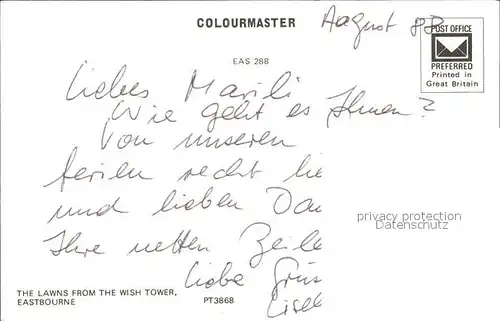 COLOURMASTER
August 88
POST OFFICE
PREFERRED
Printed in
Great Britain
EAS 288
Liebes Marili
Wie geht es Ihnen?
Von unseren
ferien recht lie
und lieben Dan
Ihre netten Zeile
liebe Grüs
privacy protection
Datenschutz
THE LAWNS FROM THE WISH TOWER,
EASTBOURNE
PT3868